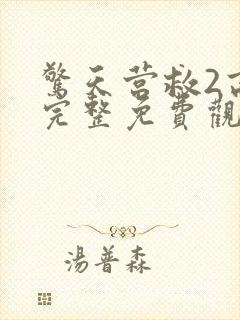 驚天营救2高
完整免費觀
湯普森